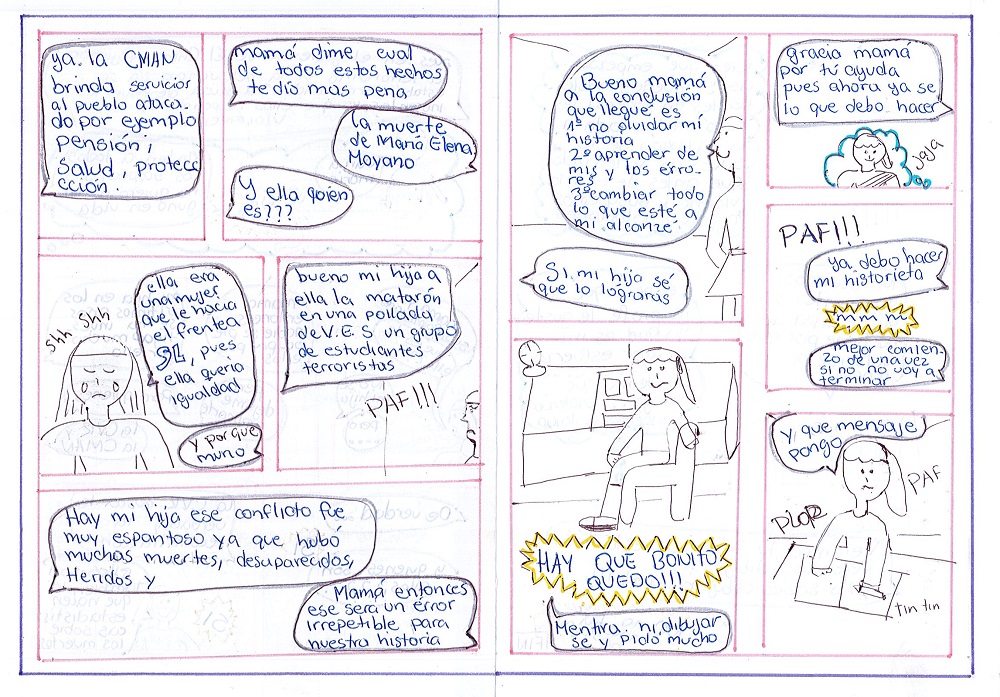 ya. la CMAN
brinda servicios
al pueblo ataca-
do por ejemplo
pensión,
salud, protecc
cción.
mamá dime cual
de todos estos hechos
te dío mas pena
la muerte
de María Elena
Moyano
Y ella quien
es???
shh shh
ella era
una mujer
que le hacia
el frente a
SL, pues
ella quería
igualdad
y por que
murio
bueno mi hija a
ella la matarón
en una pollada
de V.E.S un grupo
de estudiantes
terroristas
PAF!!!
Hay mi hija ese conflicto fue
muy espantoso ya que hubó
muchas muertes, desaparecidos,
Heridos y
Mamá entonces
ese sera un error
irrepetible para
nuestra historia
Bueno mamá
a la conclusión
que llegué es
1º no olvidar mi
historia
2º aprender de
mis y los erro-
res
3º cambiar todo
lo que esté a
mi alcanzé
Si mi hija sé
que lo lograrás
gracia mamá
por tú ayuda
pues ahora ya se
lo que debo hacer
jaja
PAF!!!
ya debo hacer
mi historieta
m m m
mejor comien-
zo de una vez
si no no voy a
terminar
HAY QUE BONITO
QUEDO!!!
Mentira. ni dibujar
se y pido mucho
y, que mensaje
pongo
PAF
PLOP
tin tin